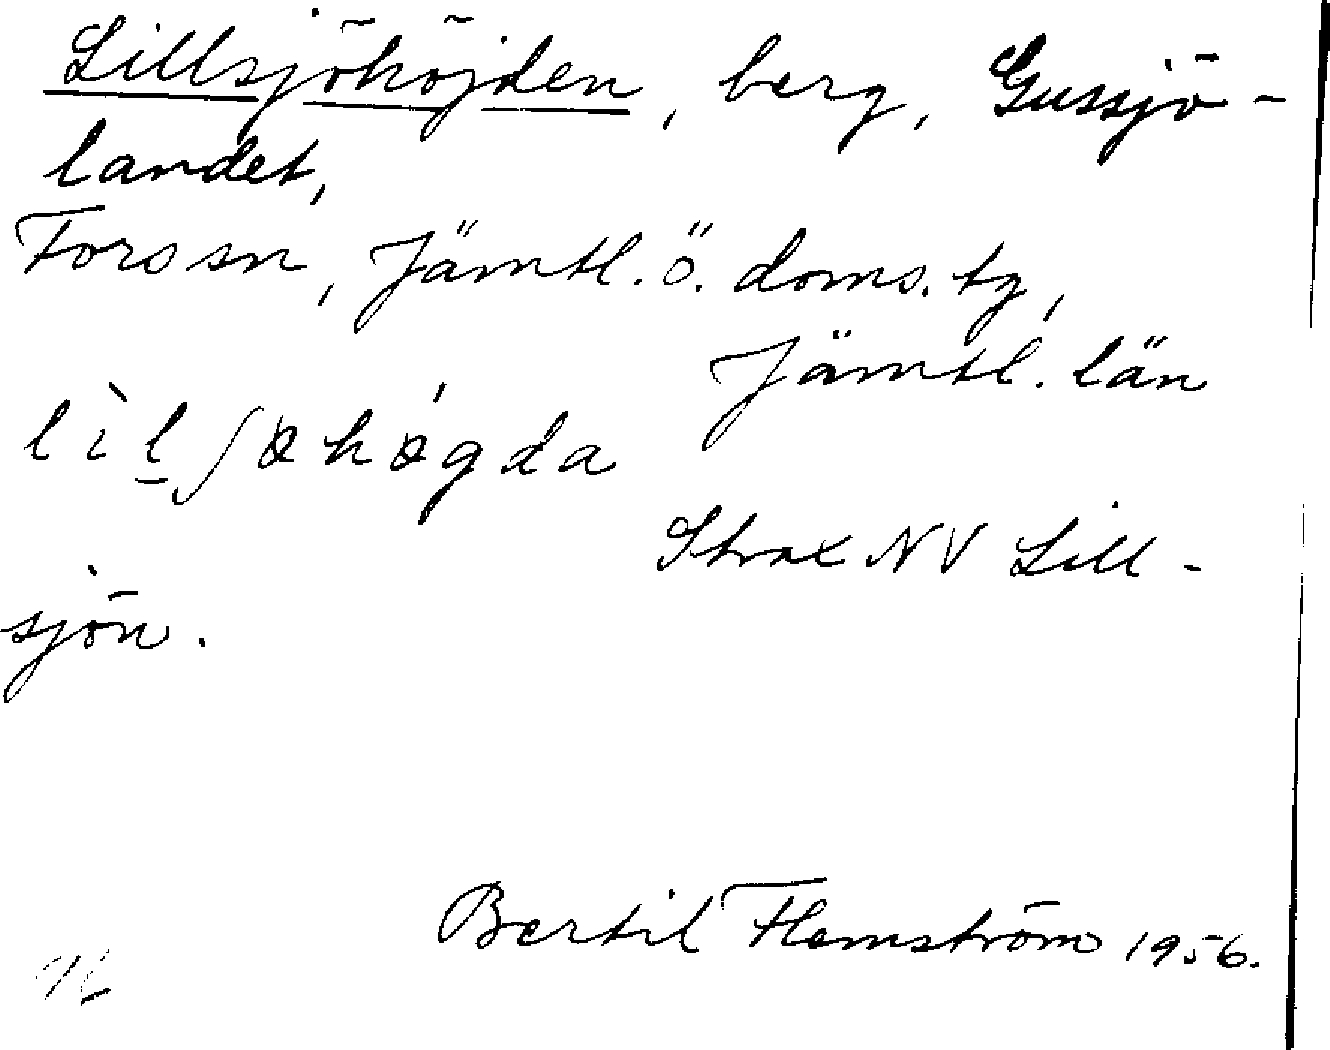 Lillsjöhöjden, berg, Gussjö-
landet,
Fors sn, Jämtl. ö. doms. tg,
Jämtl. län
lìlʃøhǿgda
Strax NV Lill-
sjön.
Bertil Flemström 1956.